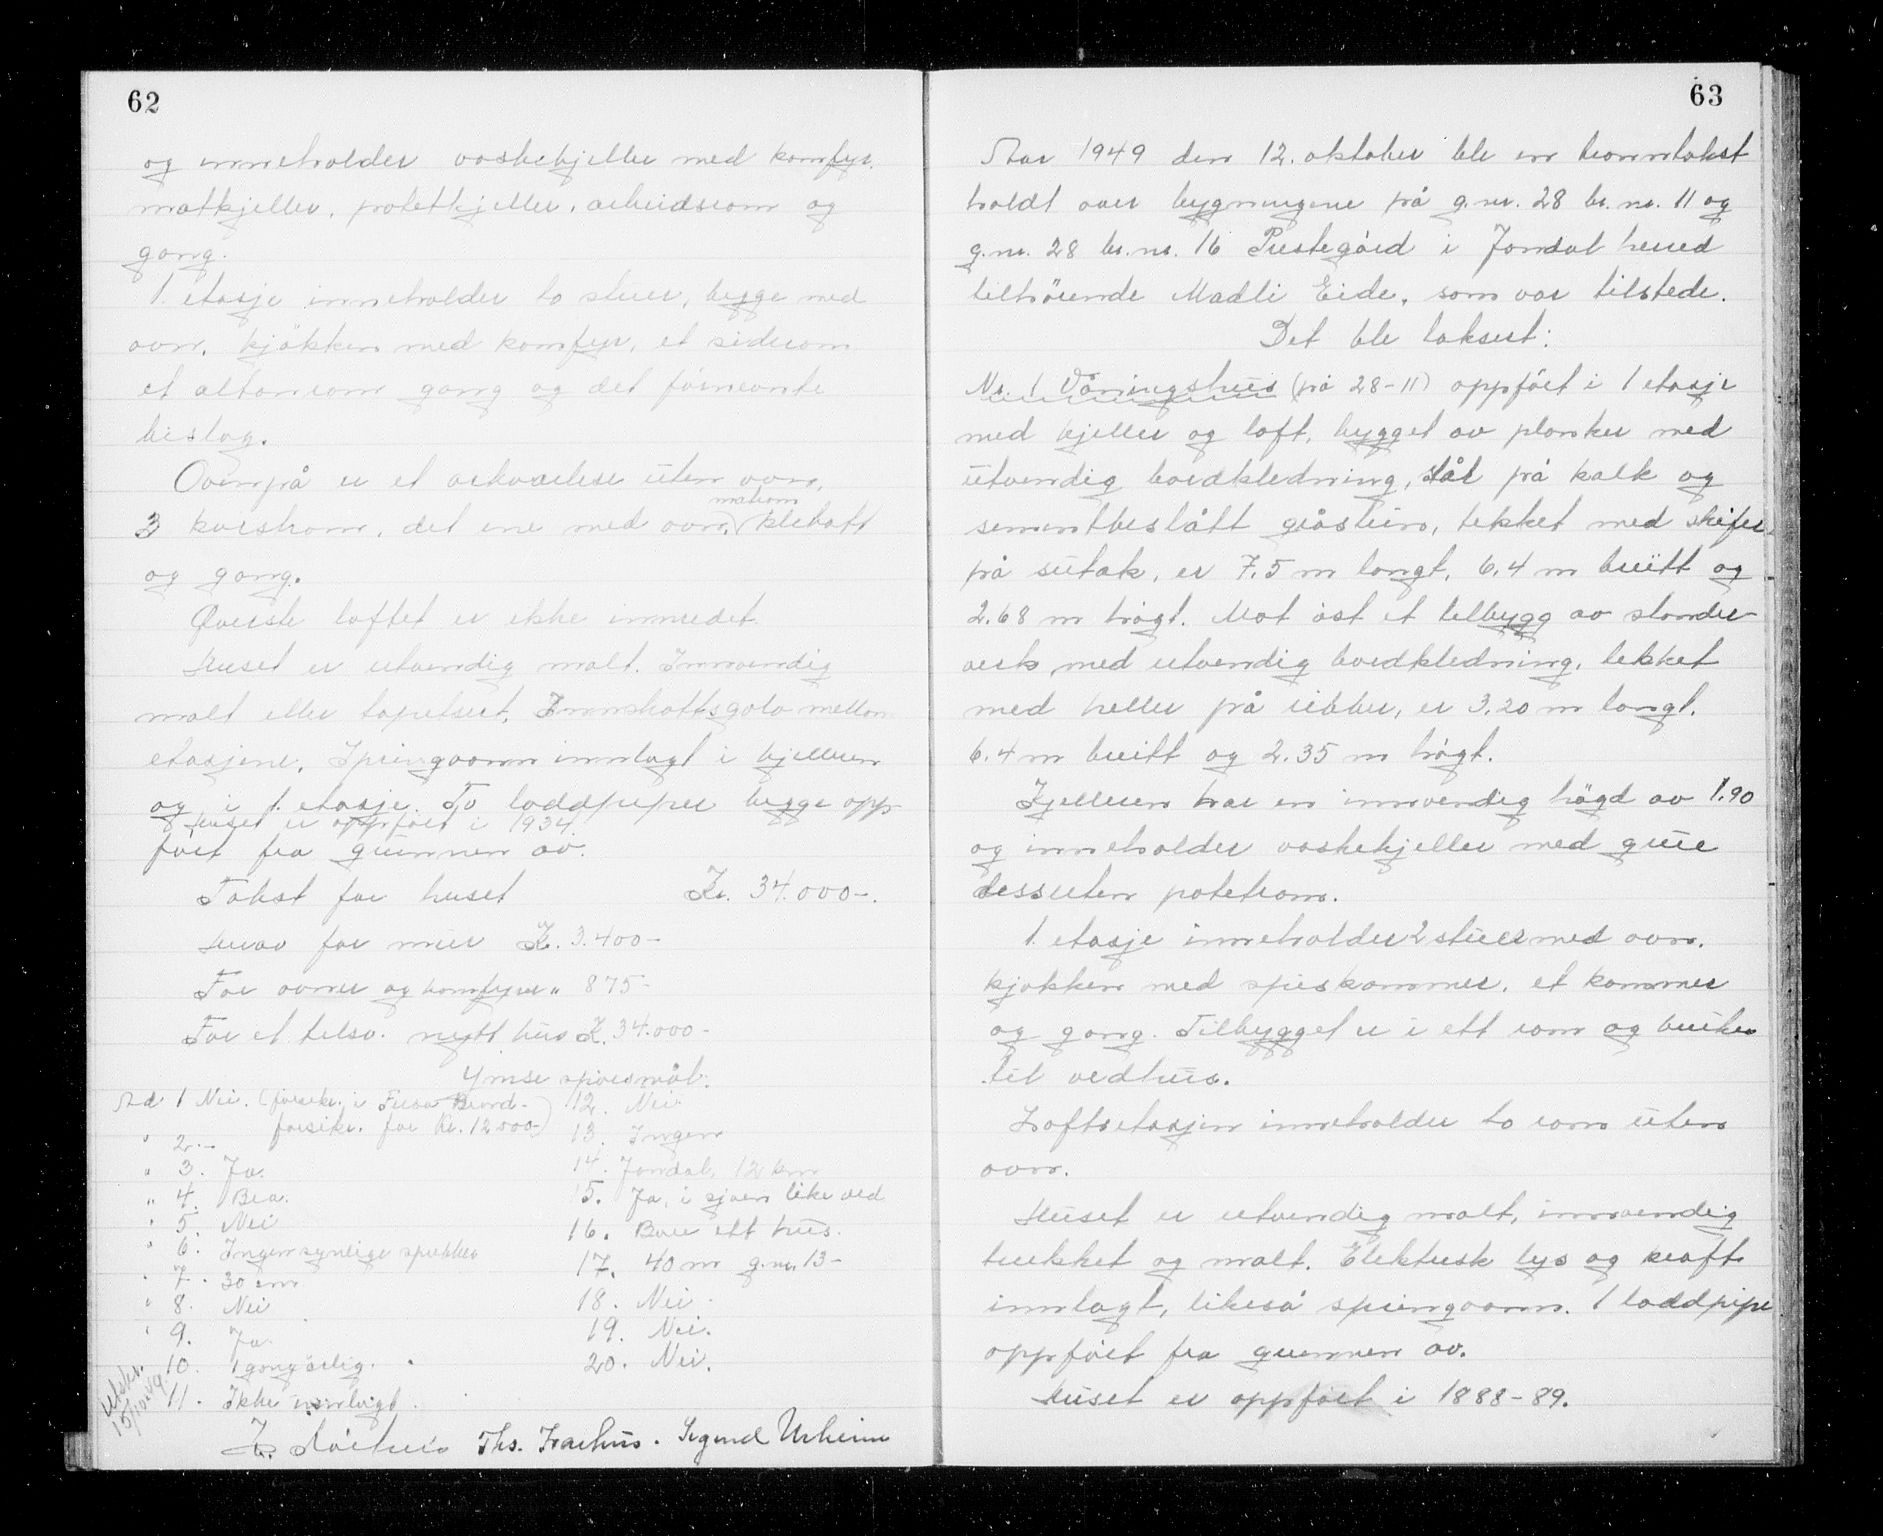 62
og inneholder vaskekjeller med komfyr.
matkjeller, potetkjeller, arbeidsrom og
gang.
1. etasje inneholder to stuer, begge med
ovn, kjøkken med komfyr, et siderom
et altanrom gang og det førnevnte
bislag.
Ovenpå er et arkværelse uten ovn,
matrom
3 kvistrom, det ene med ovn, kleloft
og gang.
Øverste loftet er ikke innredet.
Huset er utvendig malt. Innvendig
malt eller tapetsert. Innskottsgolv mellom
etasjene. Springvann innlagt i kjelleren
og i 1. etasje. To loddpiper begge opp-
Huset er oppført i 1934
ført fra grunnen av.
Takst for huset Kr. 34.000-.
Herav for mur K. 3.400-
For ovner og komfyrer " 875-
For et tilsv. nytt hus K. 34.000-
Ymse spörsmål:
Ad 1 Nei. (forsikr. i Brand-
forsikr. for Kr. 12000-)
" 2. -
" 3. Ja.
" 4. Bra.
" 5. Nei
" 6. Ingen synlige sprekker
" 7. 30 cm
" 8. Nei
" 9. Ja.
10. 1 gang årlig.
11. Ikke innlagt.
12. Nei
13. Ingen
14. Jondal, 12 km
15. Ja, i sjøen like ved
16. Bare ett hus.
17. 40 m g.nr. 13-
18. Nei
19. Nei.
20. Nei.
Utskr.
15/10-49
Ths. Sigurd Urheim
63
Aar 1949 den 12. oktober ble en branntakst
holdt over bygningene på g.nr. 28 br.nr. 11 og
g.nr. 28 br.nr. 16 Prestegård i Jondal herred
tilhörende Madli Eide, som var tilstede.
Det ble taksert:
Nr. 1 Våningshus (på 28-11) oppført i 1 etasje
med kjeller og loft, bygget av planker med
utvendig bordkledning, står på kalk og
sementbeslått gråstein, tekket med skifer
på sutak, er 7,5 m langt, 6,4 m breitt og
2.68 m høgt. Mot øst et tilbygg av stender-
verk med utvendig bordkledning, tekket
med heller på ribber, er 3.20 m langt.
6.4 m breitt og 2.35 m høgt.
Kjelleren har en innvendig høgd av 1.90
og inneholder vaskekjeller med grue
dessuten potetrom.
1. etasje inneholder 2 stuer med ovn.
kjøkken med spiskammer, et kammer
og gang. Tilbygget er i ett rom og brukes
til vedhus.
Loftsetasjen inneholder to rom uten
ovn.
Huset er utvendig malt, innvendig
trekket og malt. Elektrisk lys og kraft
innlagt, likeså springvann. 1 loddpipe
oppført fra grunnen av.
Huset er oppført i 1888-89.